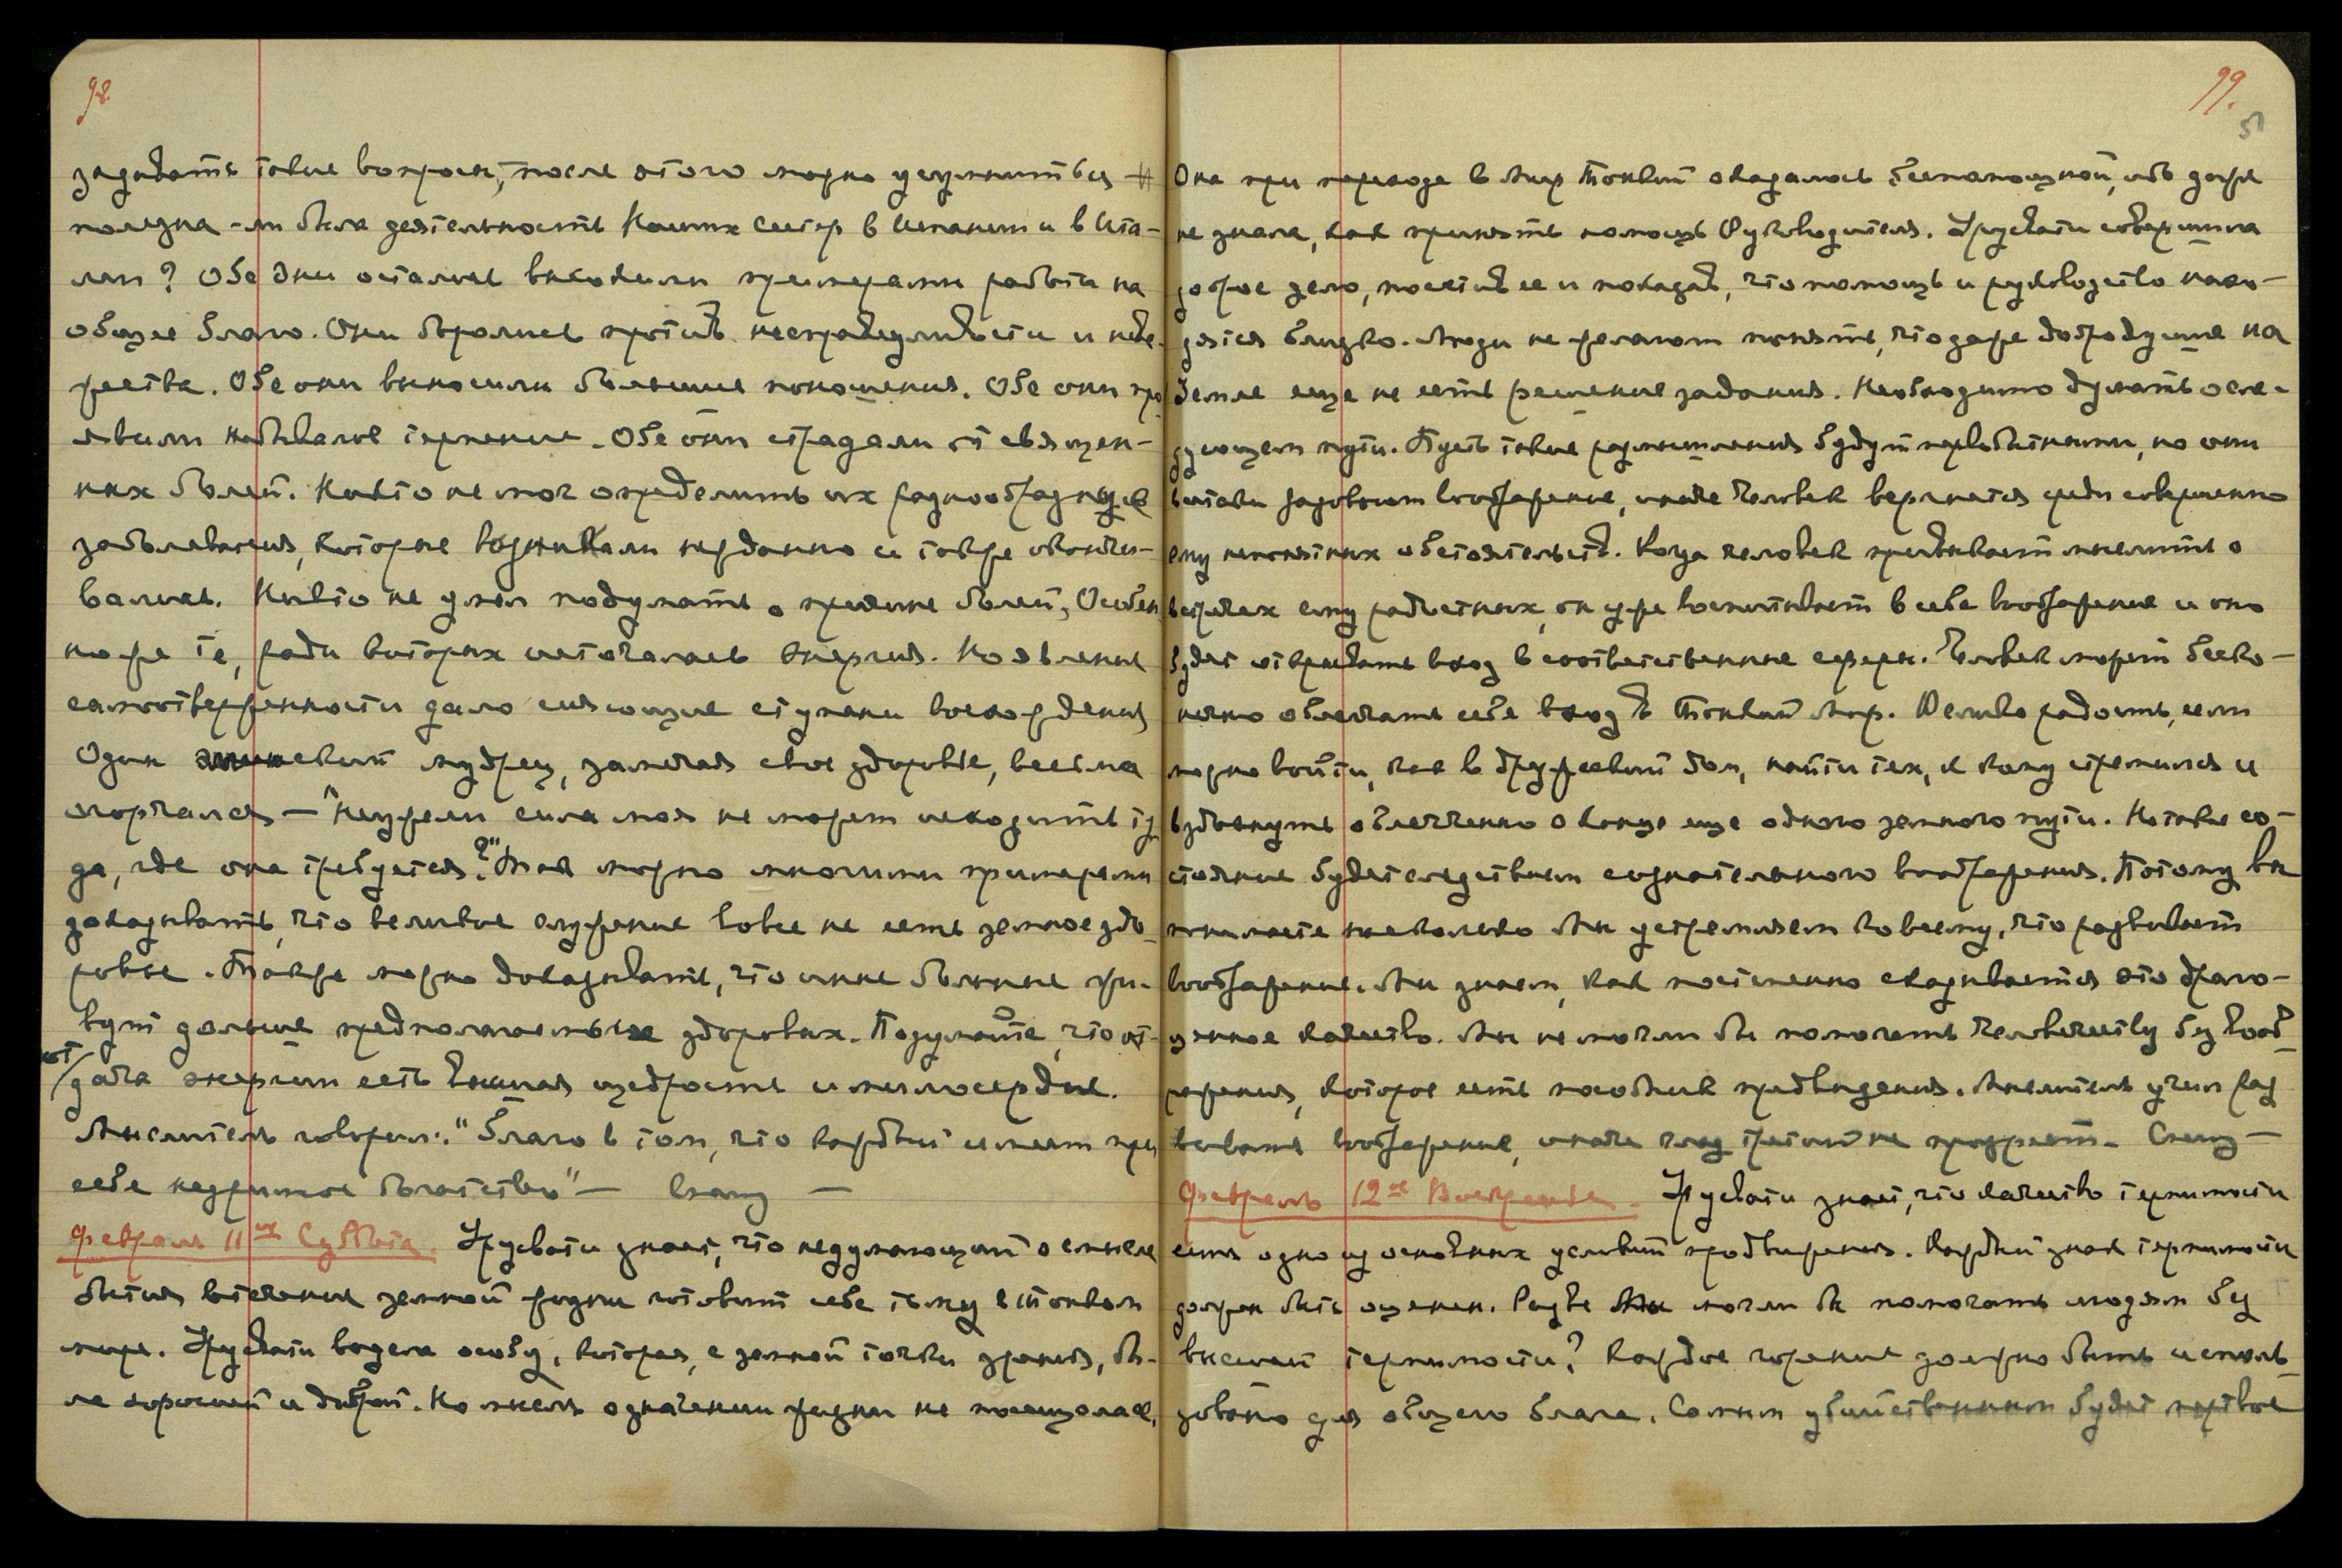 98.
задавать такие вопросы, после этого можно усумниться #
полезна-ли была деятельность Наших Сестер в Испании и в Ита-
лии? Обе Они остались высокими примерами работы на
общее благо. Они боролись против несправедливости и неве-
жества. Обе они выносили большие поношения. Обе они про-
явили небывалое терпение. Обе они страдали от священ-
ных болей. Никто не мог определить их разнообразных
заболевания, которые возникали нежданно и также оканчи-
вались. Никто не умел подумать о причине болей, Особен
но же те, ради которых источалась Энергия. Но явление
самоотверженности дало сияющие ступени восхождения
Один мудрец, замечая свое здоровье, весьма
огорчался — "Неужели сила моя не может исходить ту
да, где она требуется?" Так можно многими примерами
доказывать, что великое служение вовсе не есть земное здо-
ровье. Также можно доказывать, что иные больные жи-
вут дольше предполагаемых здоровых. Подумайте, что от-
от/дача энергии есть высшая щедрость и милосердие.
Мыслитель говорил: "Благо в том, что каждый имеет при
себе неззримое богатство" — Сказ —
Февраль 11ое Суббота. Урусвати знает, что недумающий о смысле
бытия в течение земной жизни готовит себе тьму в Тонком
мире. Урусвати видела особу, которая, с земной точки зрения, бы-
ла хорошей и доброй. Но мысль о значении жизни не посещала ее.
99.
51
Она при переходе в Мир Тонкий оказалась беспомощной, ибо даже
не знала, как принять помощь Руководителя. Урусвати совершила
доброе дело, посетив ее и показав, что помощь и руководство нахо-
дятся близко. Люди не желают понять, что даже добродушие на
Земле еще не есть решение задания. Необходимо думать о сле-
дующем пути. Пусть такие размышления будут первобытными, но они
все-таки разовьют воображение, иначе человек вержется среди совершенно
ему непонятных обстоятельств. Когда человек привыкает мыслить о
встречах ему радостных, он уже воспитывает в себе воображение и оно
будет открывать вход в соответственные сферы. Человек может беско-
нечно облегчать себе вход в Тонкий Мир. Велика радость, если
можно войти, как в дружеский дом, найти тех, к кому стремился и
вздохнуть облегченно о конце еще одного земного пути. Но такое со-
стояние будет следствием сознательного воображения. Потому вы
понимаете насколько Мы устремляем ко всему, что развивает
воображение. Мы знаем, как постепенно складывается это драго-
ценное качество. Мы не могли бы помогать человечеству без вооб-
ражения, которое есть пособник предвидения. Мыслитель учил раз
вивать воображение, иначе глаз третий не прозреет. Сказ —
Февраль 12ое Воскресенье. Урусвати знает, что качество терпимости
есть одно из основных условий продвижения. Каждый знак терпимости
должен быть оценен. Разве Мы могли бы помогать людям без
высшей терпимости? Каждое горение должно быть исполь-
зовано для общего блага. Самым убийственным будет мертвое